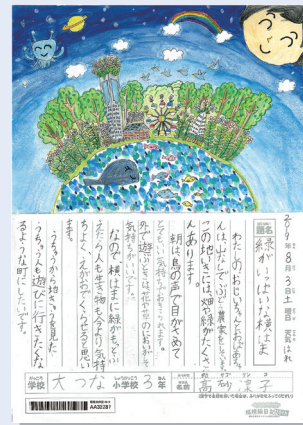 2019年8月3日土曜日 天気はれ
題名 緑がいっぱいな横はま
わたしのおじいちゃんとおばあちゃ
んは、農家をしています。
この地いきには、畑や緑がたくさ
んあります。
朝は鳥の声で目がさめて
とてもいい気持ちでおきられます。
外で遊ぶときは花や草のにおいがして
気持ちがいいです。
なので、横はまに緑がもっとふ
えたら人も生き物も今より気持
ちよく、えがおでくらせると思い
ます。
うちゅうから地きゅうを見た
うちゅう人も遊びに行きたくな
るような町にしたいです。
学校 大つな 小学校 3年 名前 高砂 涼子
AA32287